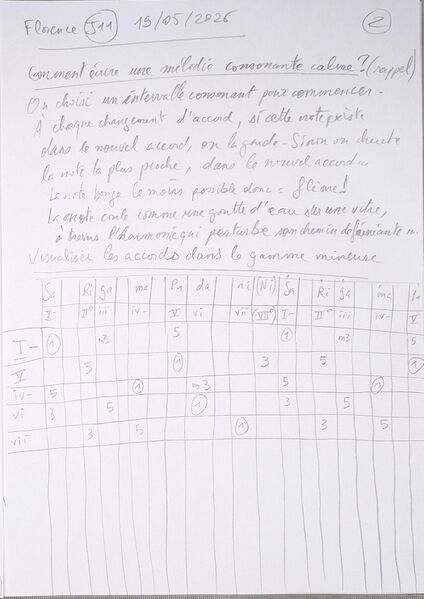 Florence J11 19/05/2026 2
Comment écrire une mélodie consonante calme? (rappel)
On choisi un intervalle consonant pour commencer.
À chaque changement d'accord, si cette note existe
dans le nouvel accord, on la garde - Sinon on cherche
la note la plus proche, dans le nouvel accord
La note bouge le moins possible donc = flème!
La note coule comme une goutte d'eau sur une vitre,
à travers l'harmonie qui perturbe son chemin
Visualiser les accords dans la gamme mineure
Sa Ri ga ma Pa da ni (Ni) Sa Ri ga ma Pa
I- II° iii iv- V vi vii (VII°) I- II° iii iv-
I- 1 m3 5 1 m3 5
V 5 1 3 5 1
iv- 5 1 m3 5 1
vi 3 5 1 3 5
vii 3 5 1 3 5